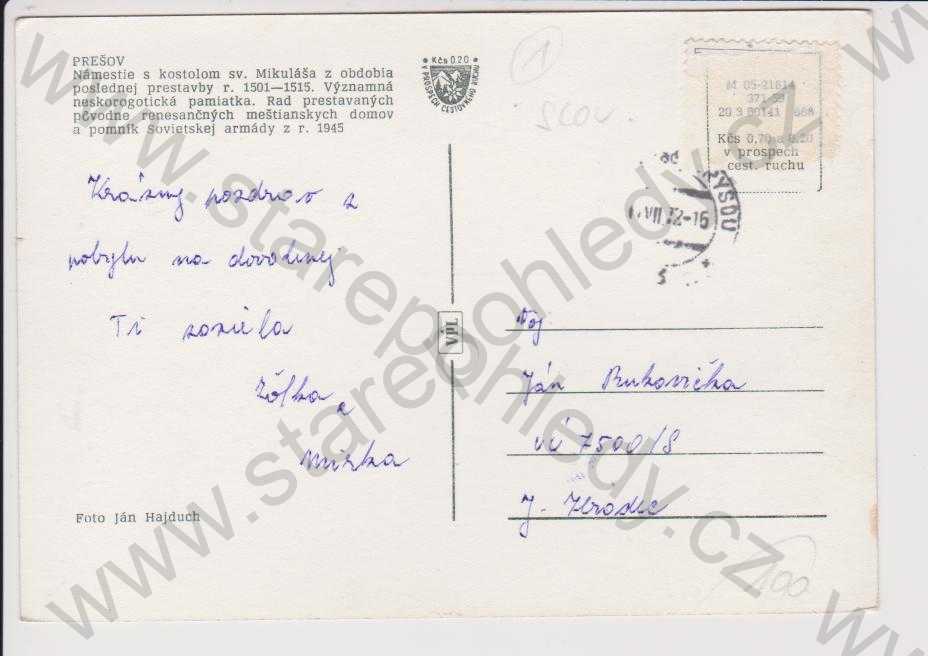 PREŠOV
Námestie s kostolom sv. Mikuláša z obdobia
poslednej prestavby r. 1501—1515. Významná
neskorogotická pamiatka. Rad prestavaných
pôvodne renesančných meštianskych domov
a pomník Sovietskej armády z r. 1945
Kčs 0.20
V PROSPECH CESTOVNÉHO RUCHU
1
SLOV.
M 05-21614
371-59
Kčs 0,70 a 0,20
v prospech
cest. ruchu
VII.72-16
Krásny pozdrav z
pobytu na dovolenej
Ti zasiela
a
Mirka
VDL
Voj
Ján Rukavička
VÚ 7500/S
J. Hradec
Foto Ján Hajduch
100
www.starepohledy.cz
www.starepohledy.cz